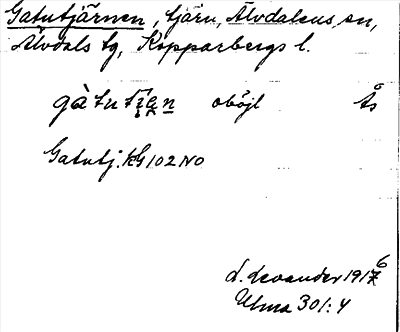 Gatutjärnen, tjärn, Älvdalens sn,
Älvdals tg, Kopparbergs l.
gàtut oböjl Ås
Gatutj. KG102NO
L. Levander 1916
Ulma 301:4